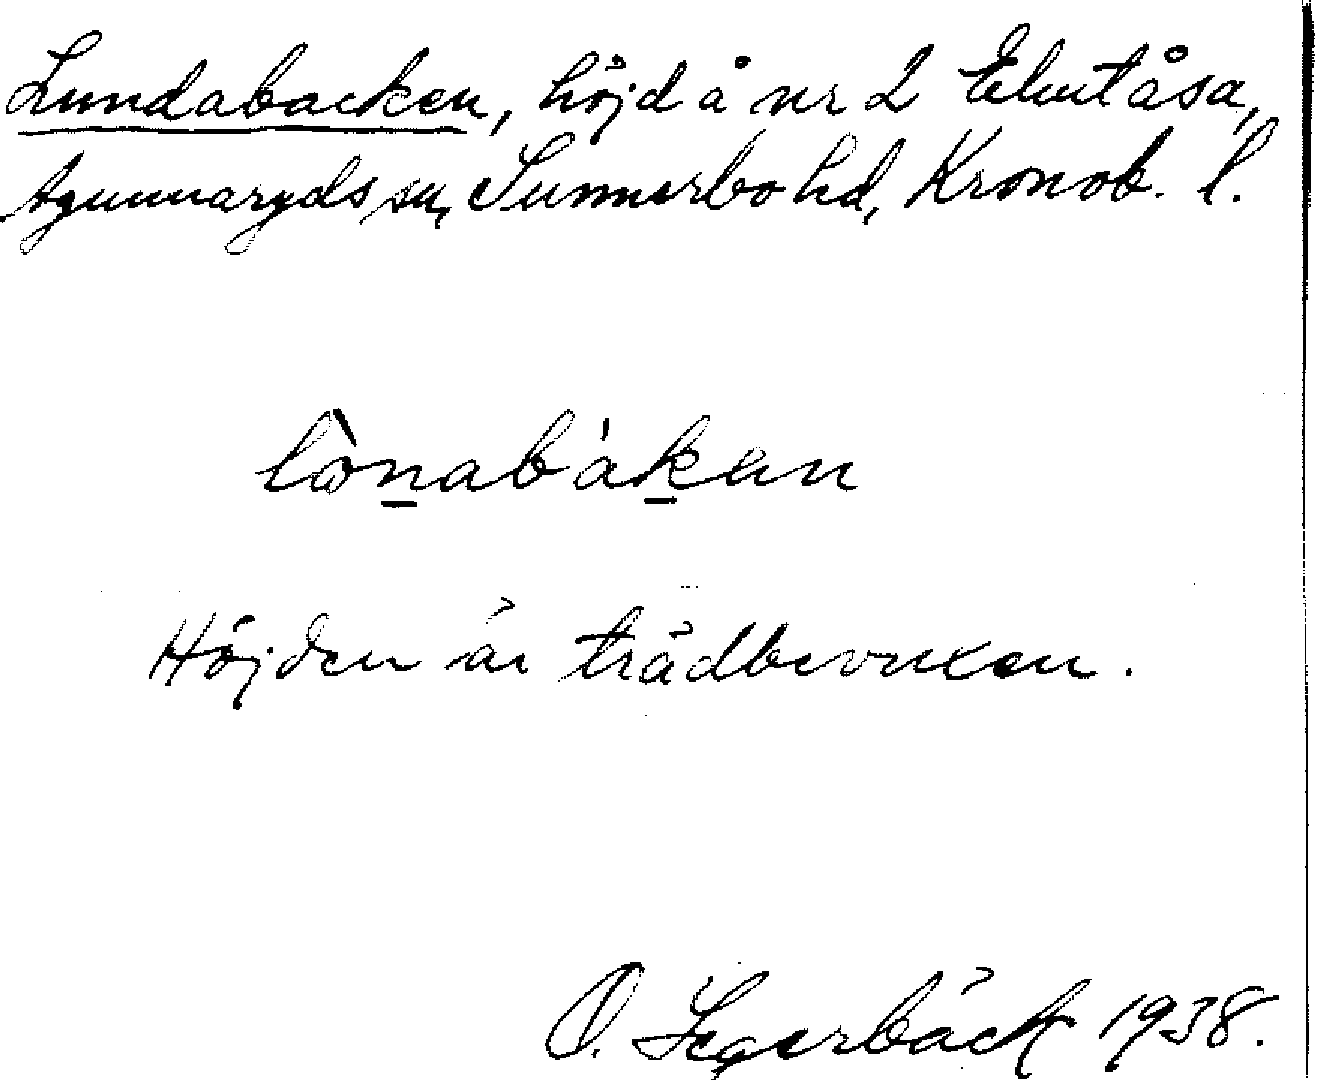 Lundabacken, höjd å nr 2 Elmtåsa,
Agunnaryds sn, Sunnerbo hd, Kronob. l.
lò̤nabákan
Höjden är trädbevuxen.
O. Segerbäck 1938.